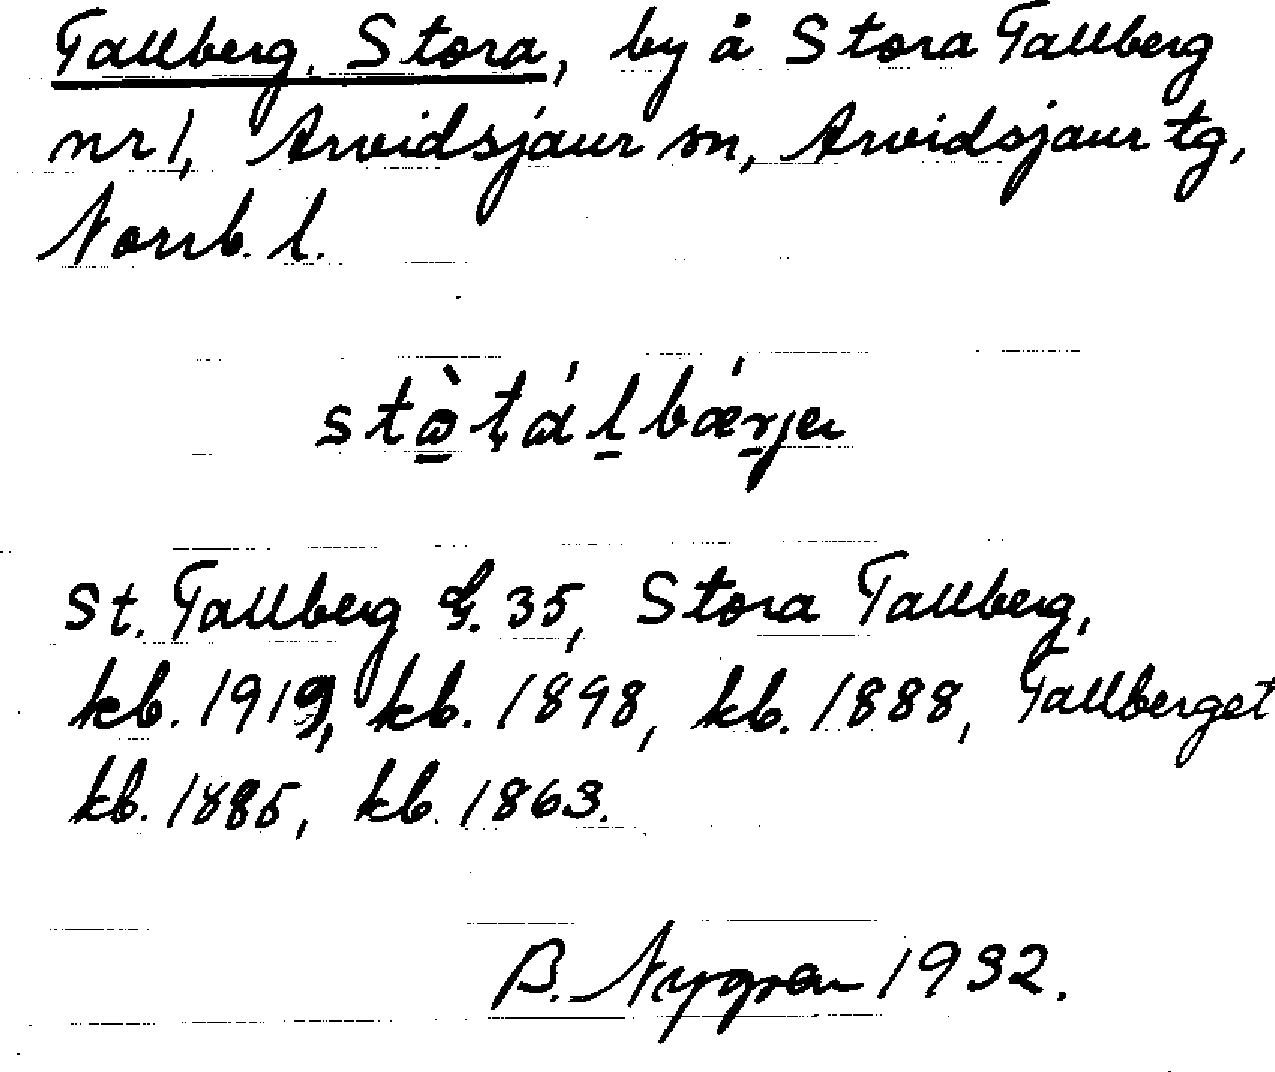 Tallberg, Stora, by å Stora Tallberg
nr 1, Arvidsjaur sn, Arvidsjaur tg,
Norrb. l.
St. Tallberg G. 35, Stora Tallberg,
kb. 1919, kb. 1898, kb. 1888, Tallberget
kb. 1885, kb. 1863.
B. Nygren 1932.